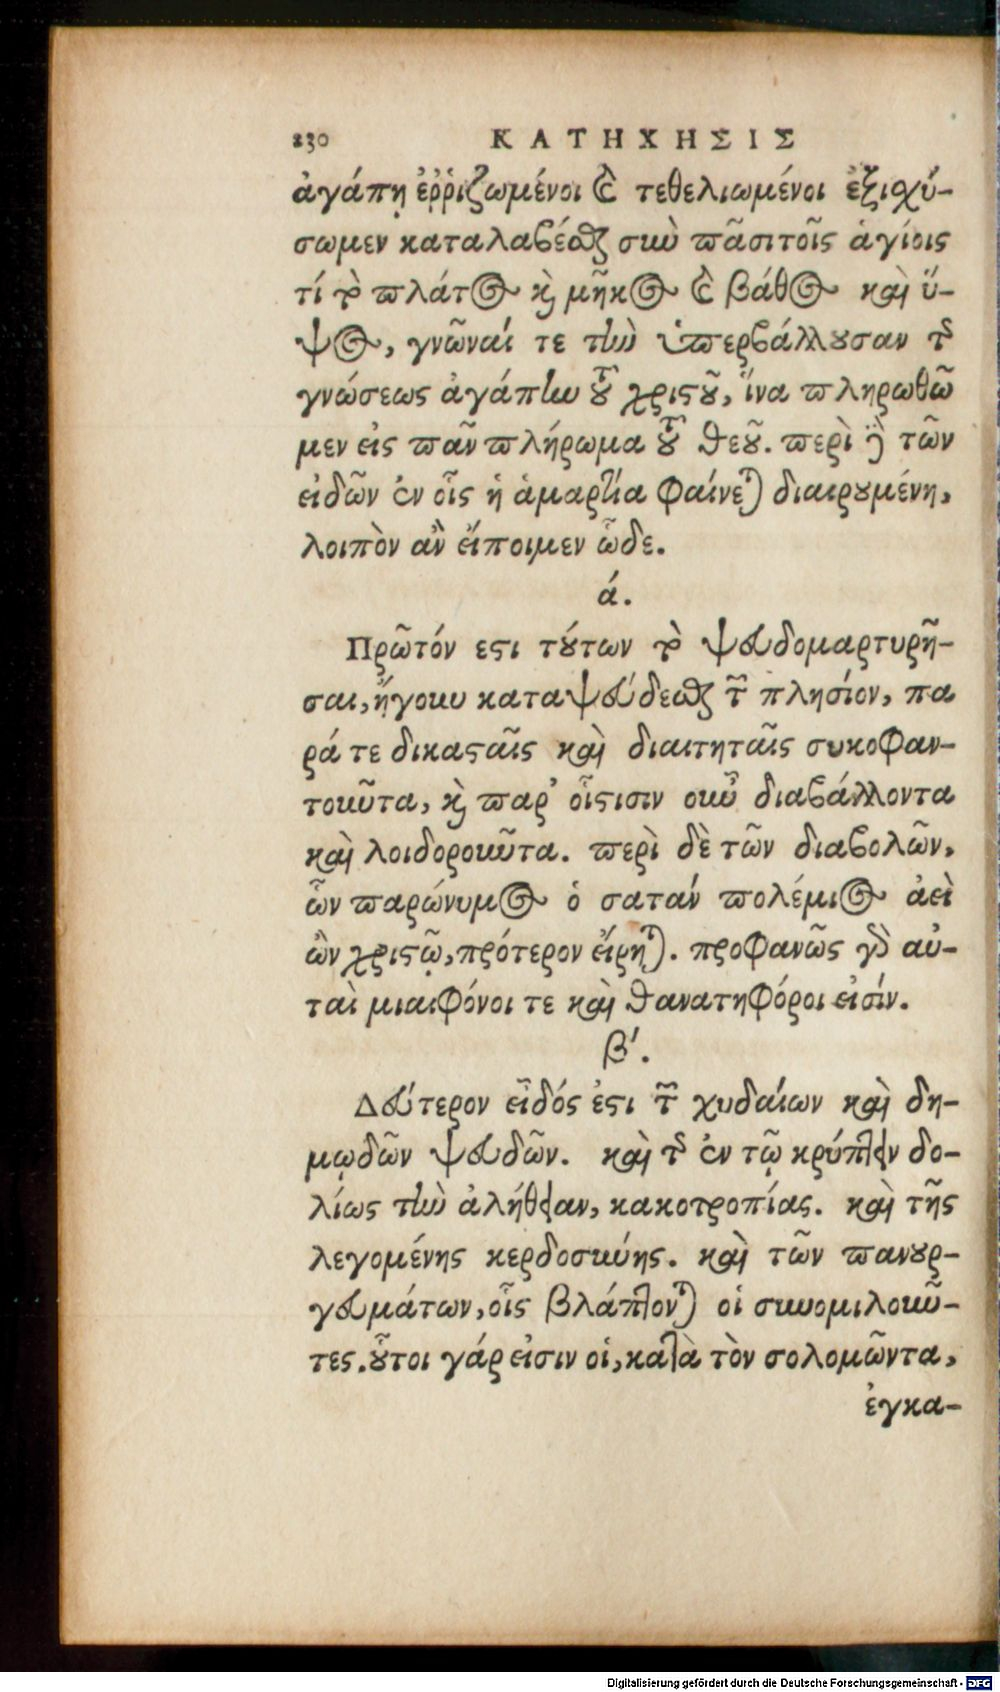 230 ΚΑΤΗΧΗΣΙΣ
ἀγάπῃ ἐῤῥιζωμένοι καὶ τεθελιωμένοι ἐξιχύ-
σωμεν καταλαβέσθαι σὺν πᾶσι τοῖς ἁγίοις
τί τὸ πλάτος καὶ μῆκος καὶ βάθος καὶ ὕ-
ψος, γνῶναί τε τὴν ὑπερβάλλουσαν τῆς
γνώσεως ἀγάπην τοῦ χριστοῦ, ἵνα πληρωθῶ
μεν εἰς πᾶν πλήρωμα τοῦ θεοῦ. περὶ δὲ τῶν
εἰδῶν ἐν οἷς ἡ ἁμαρτία φαίνεται διαιρουμένη,
λοιπὸν ἂν εἴποιμεν ὧδε.
ά.
Πρῶτόν εστι τούτων τὸ ψευδομαρτυρῆ-
σαι, ἤγουν καταψεύδεσθαι τῶν πλησίον, πα
ρά τε δικασταῖς καὶ διαιτηταῖς συκοφαν-
τοῦντα, καὶ παρ' οἷστισιν οὖν διαβάλλοντα
καὶ λοιδοροῦντα. περὶ δὲ τῶν διαβολῶν,
ὧν παρώνυμος ὁ σατάν πολέμιος ἀεὶ
ὢν χριστῷ, πρότερον εἴρηται. προφανῶς γὰρ αὐ-
ταὶ μιαιφόνοι τε καὶ θανατηφόροι εἰσίν.
β'.
Δεύτερον εἶδός ἐστι τῶν χυδαίων καὶ δη-
μῳδῶν ψευδῶν. καὶ τῆς ἐν τῷ κρύπτειν δο-
λίως τὴν ἀλήθειαν, κακοτροπίας. καὶ τῆς
λεγομένης κερδοσύνης. καὶ τῶν πανουρ-
γευμάτων, οἷς βλάπτονται οἱ συνομιλοῦν-
τες. οὗτοι γάρ εἰσιν οἱ, κατὰ τὸν σολομῶντα,
ἐγκα-
Digitalisierung gefördert durch die Deutsche Forschungsgemeinschaft - DFG